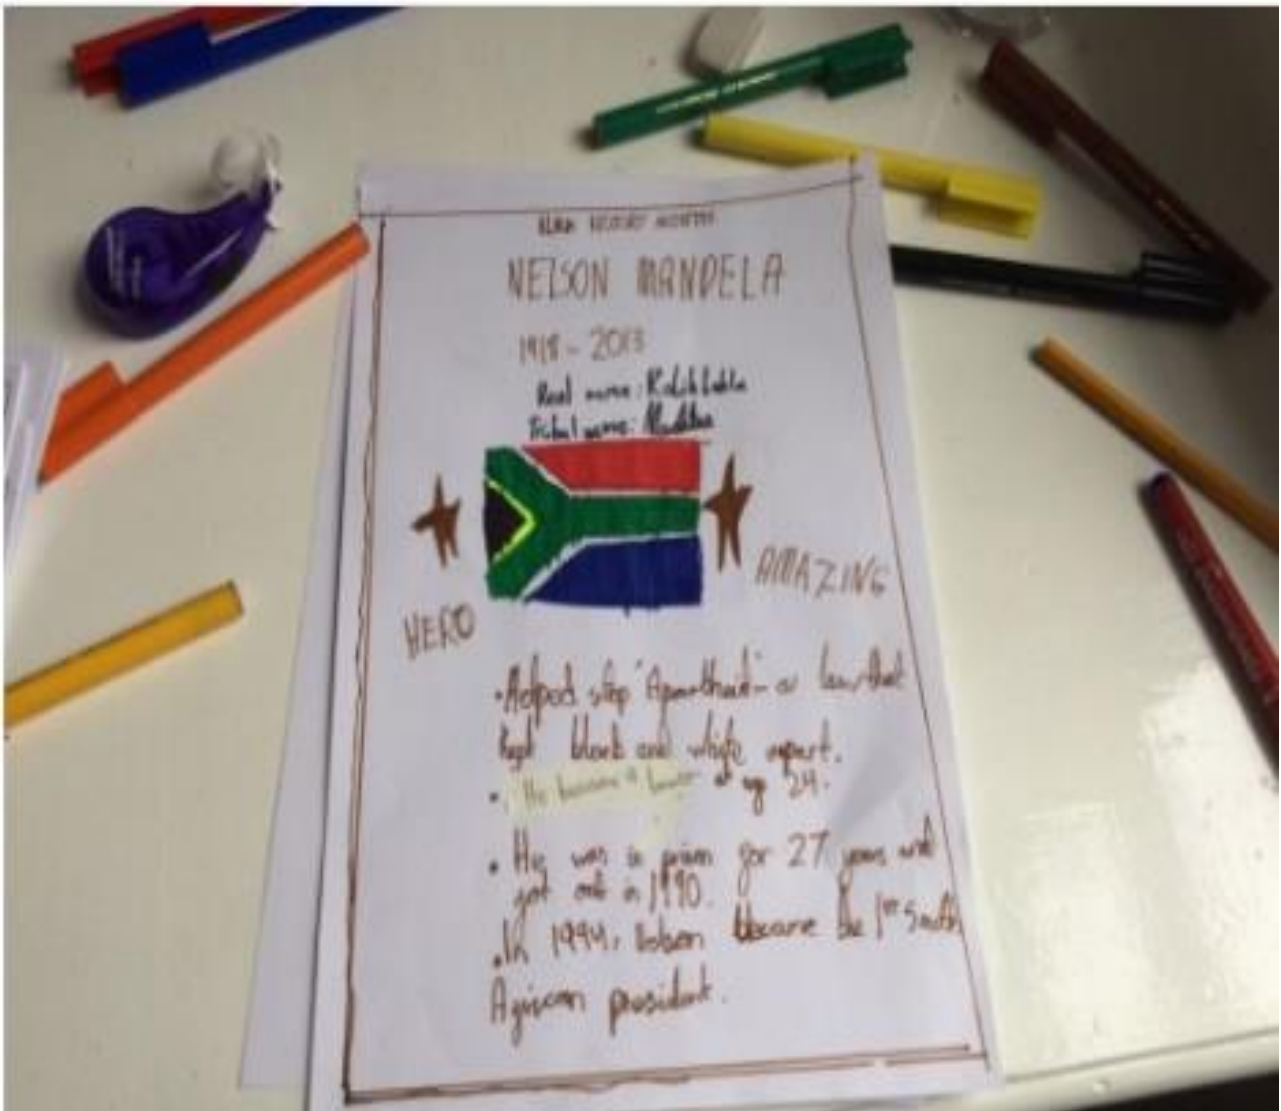 BLACK HISTORY MONTH
NELSON MANDELA
1918 - 2013
Real name: Rolihlahla
Tribal name: Madiba
HERO
AMAZING
• Helped stop "Apartheid" - a law that
kept black and white apart.
• He became a lawyer at age 24.
• He was in prison for 27 years and
got out in 1990.
• In 1994, Nelson became the 1st South
African president.